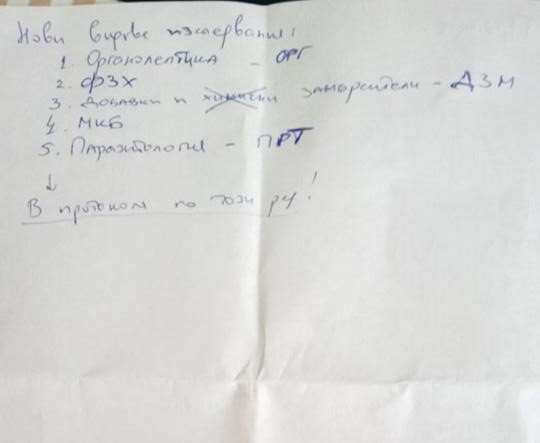 Нови видове изследвания!
1. Органолептика - ОРГ
2. ФЗХ
3. Добавки и замърсители - ДЗМ
4. МКБ
5. Паразитология - ПРТ
↓
В протокол по този ред!